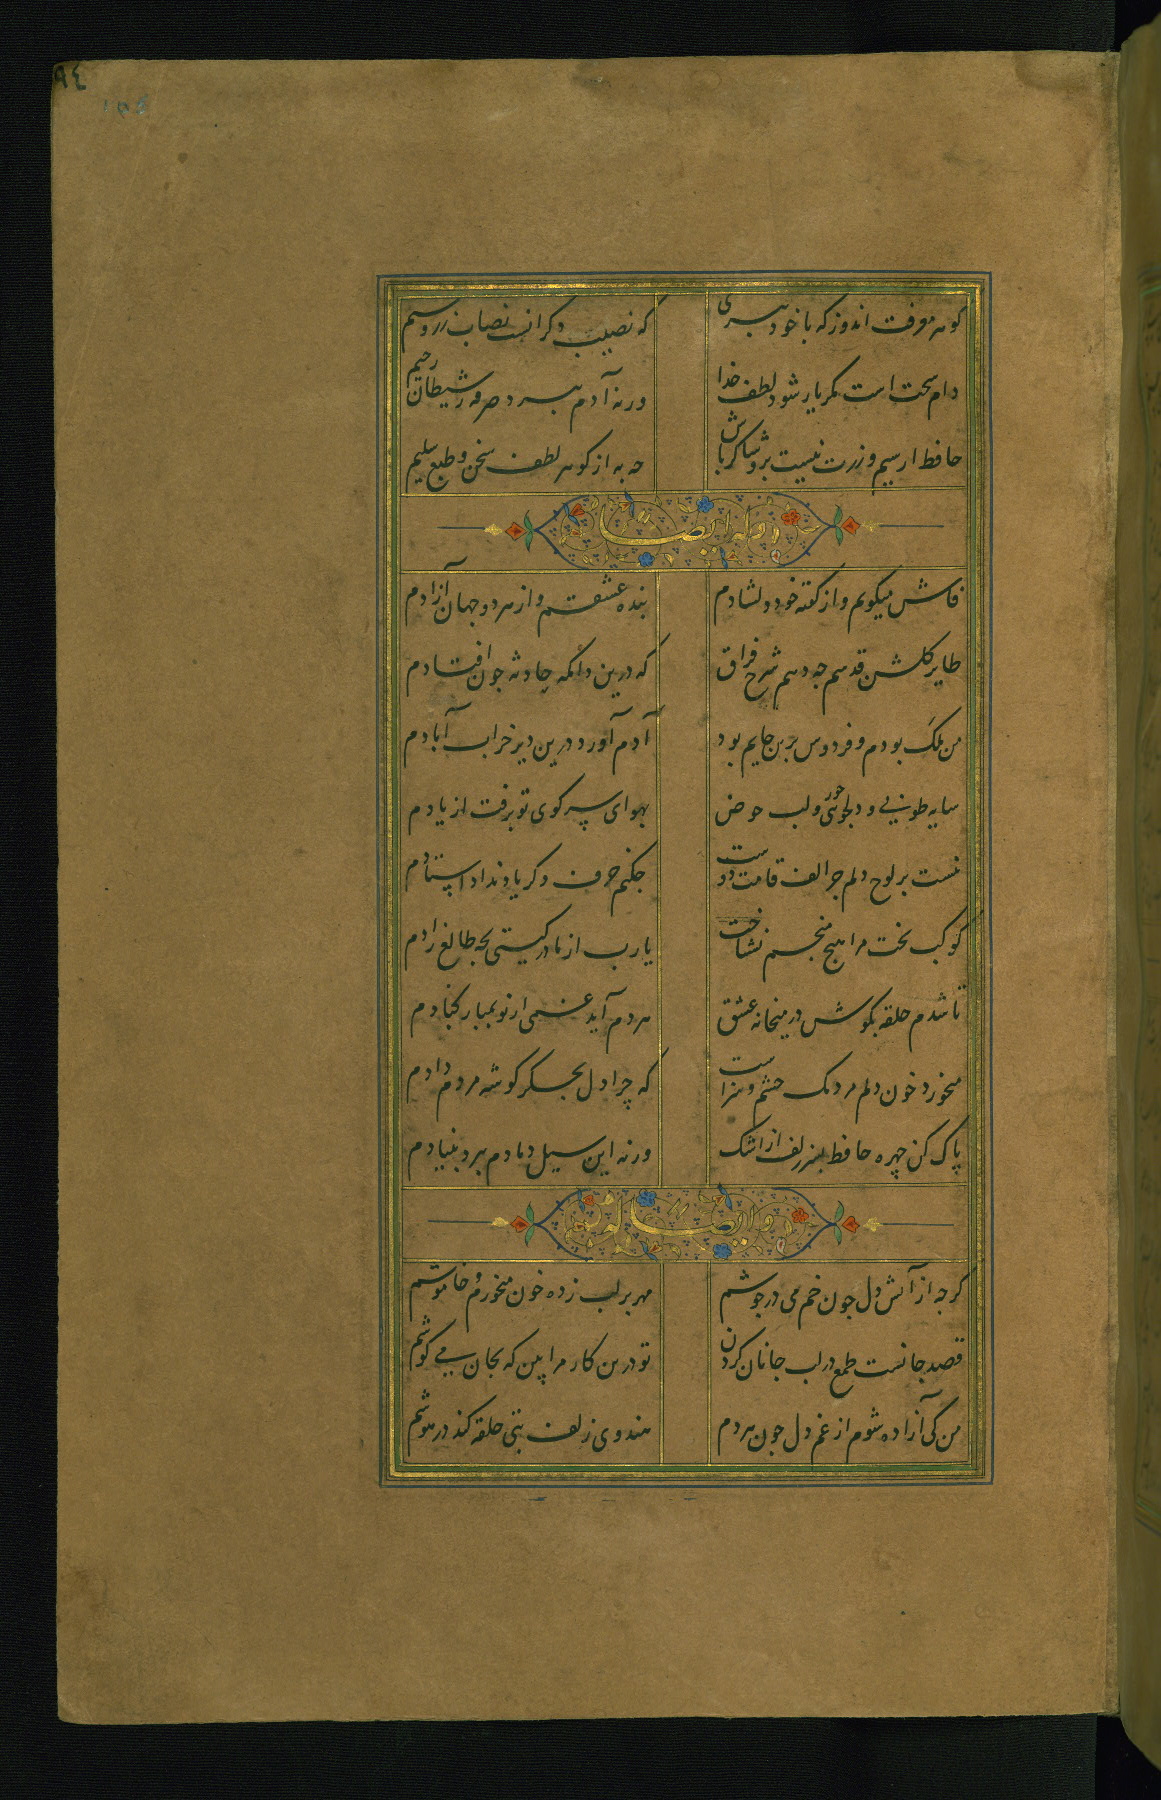 ٩٤
گوهر معرفت اندوز که با خود ببری که نصیب دکرانست نصاب زر و سیم
دام سختست مکر یار شود لطف خدا ورنه آدم نبرد صرفه ز شیطان رحیم
حافظ ار سیم و زرت نیست برو شاکر باش چه به از کوهر لطف سخن و طبع سلیم
وله ایضا
فاش میکویم و از کفته خود دلشادم بنده عشقم و از هر دو جهان آزادم
طایر کلشن قدسم چه دهم شرح فراق که درین دامکه حادثه جون افتادم
من ملک بودم و فردوس برین جایم بود آدم آورد درین دیر خراب آبادم
سایه طوبی و دلجوئی حور و لب حوض بهوای سر کوی تو برفت از یادم
نیست بر لوح دلم جز الف قامت دوست جکنم حرف دکر یاد نداد استادم
کوکب بخت مرا هیج منجم نشناخت یارب از مادر کیتی بجه طالع زادم
تا شدم حلقه بکوش در میخانه عشق هر دم آید غمی از نو بمبارکبادم
میخورد خون دلم مردمک چشم و سزاست که چرا دل بجکر کوشه مردم دادم
پاک کن چهره حافظ بسر زلف از اشک ورنه این سیل دمادم ببرد بنیادم
و ایضا له
کرجه از آتش دل جون خم می در جوشم مهر بر لب زده خون میخورم و خاموشم
قصد جانست طمع در لب جانان کردن تو درین کار مرا بین که بجان می کوشم
من کی آزاده شوم از غم دل جون هر دم هندوی زلف بتی حلقه کند در کوشم